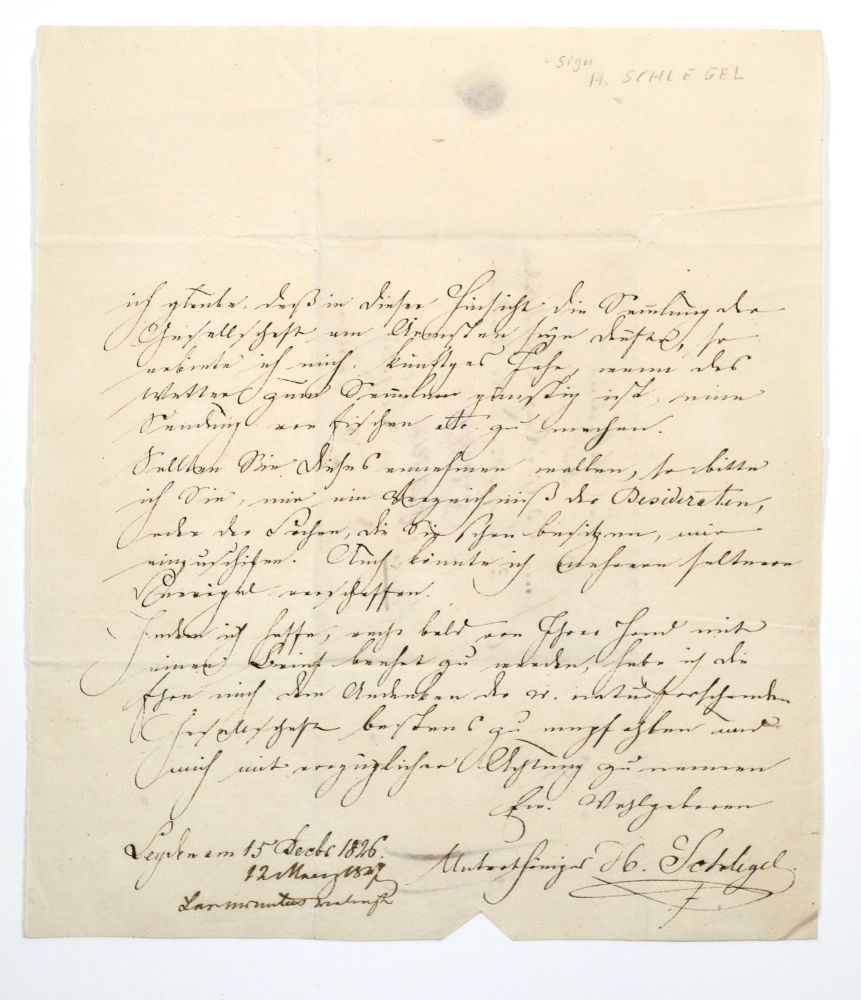 sign
H. SCHLEGEL
ich glaube, daß in dieser Hinsicht die Sammlung der
Gesellschaft am Ärmsten seyn dürfte, so
erbiete ich mich, künftges Jahr, wenn das
Wetter zum Sammlen günstig ist, eine
Sendung von Fischen etc. zu machen.
Sollten Sie dieses annehmen wollen, so bitte
ich Sie, mir ein Verzeichniß der Desideraten,
oder der Sachen, die Sie schon besitzen, mir
einzuschiken. Auch könnte ich mehrere seltnere
verschaffen.
Indem ich hoffe, recht bald von Ihrer Hand mit
einem Brief beehrt zu werden, habe ich die
Ehre mich dem Andenken der n. naturforschenden
Gesellschaft bestens zu empfehlen und
mich mit vorzüglicher Achtung zu nennen
Ew. Wohlgeboren
Leyden am 15 Decbr 1826.
12 Maerz 1827
H. Schlegel.